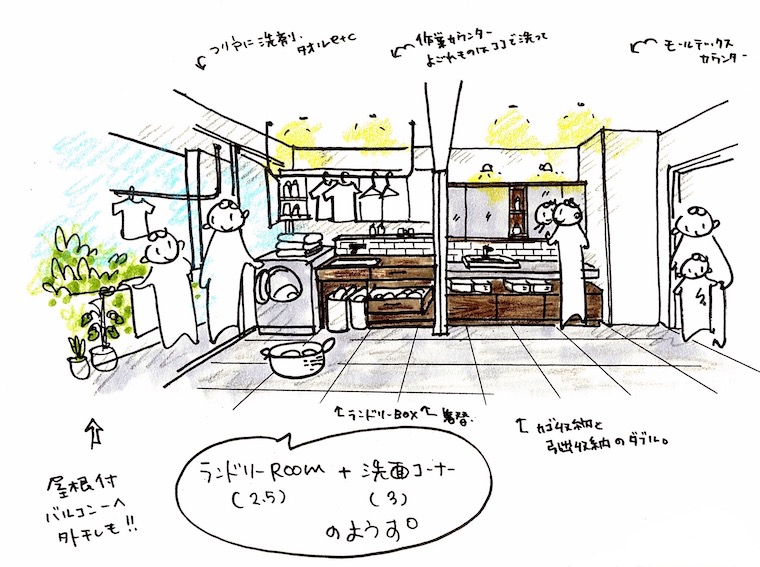 つり戸に洗剤.
タオルetc
作業カウンター
よごれものはココで洗って
モールテックス
カウンター
ランドリーBOX
着替.
カゴ収納と
引出収納のダブル。
屋根付
バルコニーへ
外干しも!!
ランドリーROOM + 洗面コーナー
(2.5) (3)
のようす。